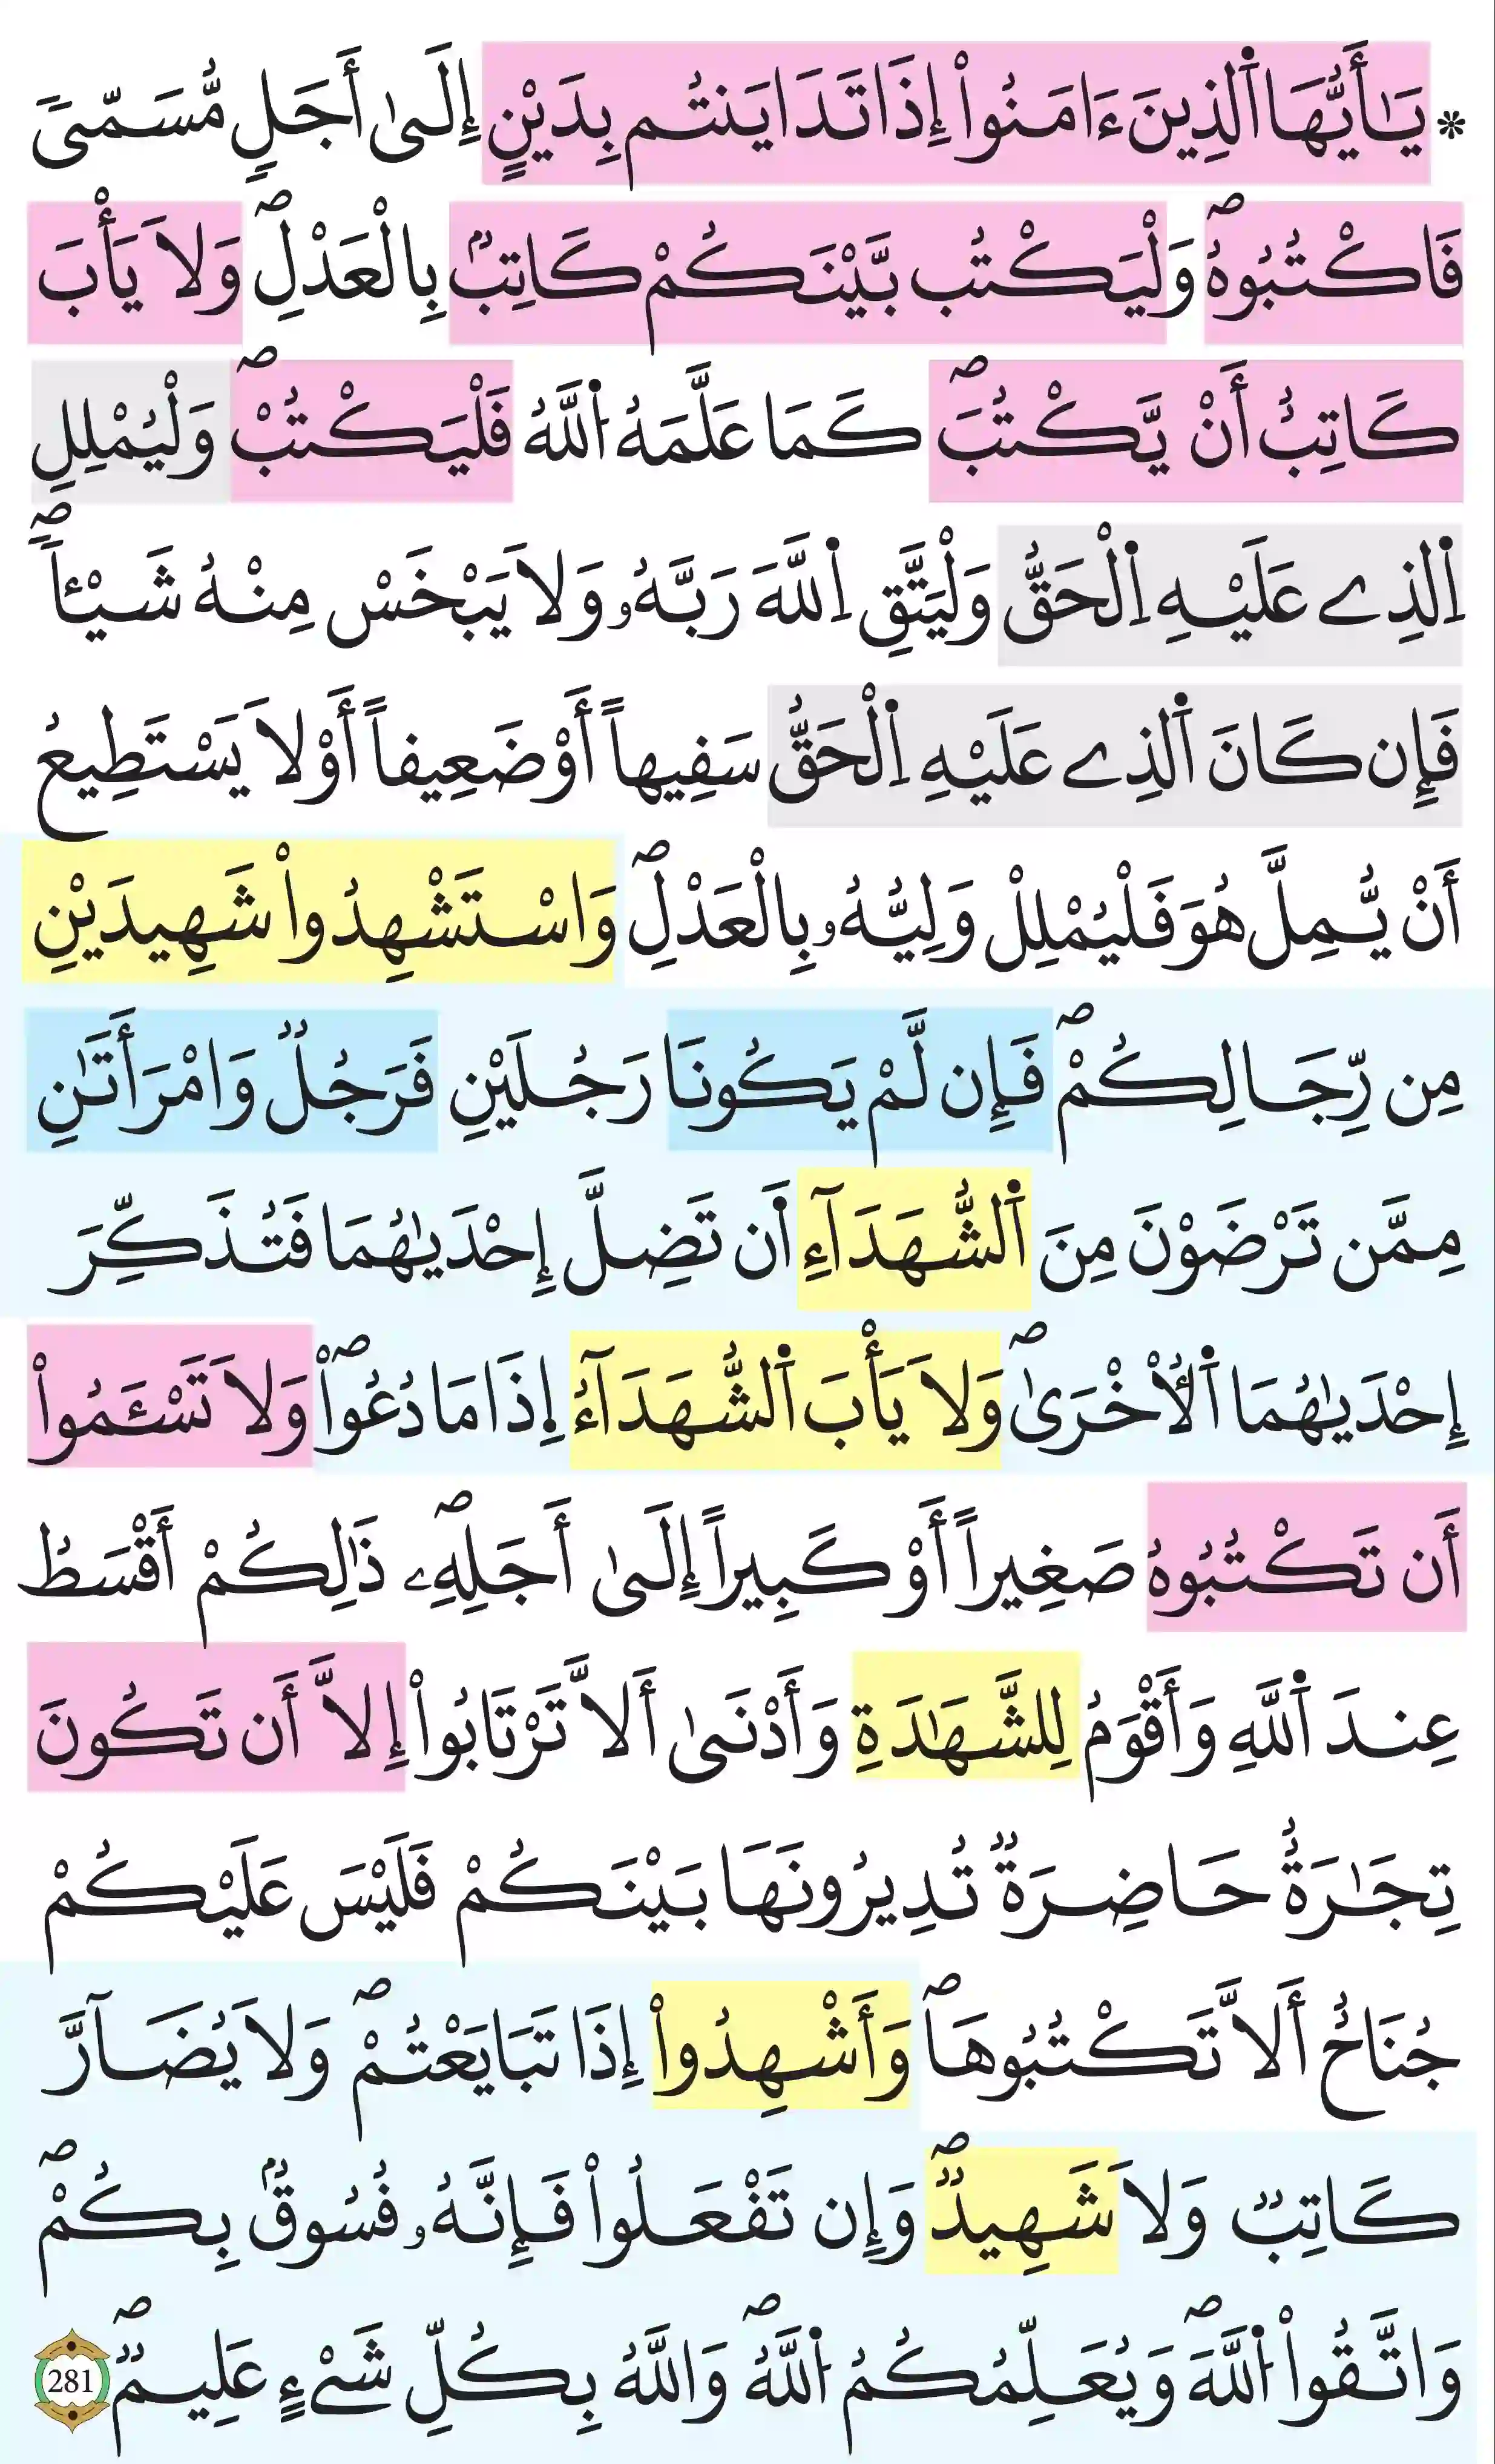 * يَٰأَيُّهَا اَ۬لذِينَ ءَامَنُواْ إِذَا تَدَايَنتُم بِدَيْنٍ إِلَىٰ أَجَلٖ مُّسَمّىٗ
فَاكْتُبُوهُۖ وَلْيَكْتُب بَّيْنَكُمْ كَاتِبُۢ بِالْعَدْلِۖ وَلَا يَأْبَ
كَاتِبٌ أَنْ يَّكْتُبَۖ كَمَا عَلَّمَهُ اُ۬للَّهُ فَلْيَكْتُبْۖ وَلْيُمْلِلِ
اِ۬لذِے عَلَيْهِ اِ۬لْحَقُّ وَلْيَتَّقِ اِ۬للَّهَ رَبَّهُۥ وَلَا يَبْخَسْ مِنْهُ شَيْـٔاٗۖ
فَإِن كَانَ اَ۬لذِے عَلَيْهِ اِ۬لْحَقُّ سَفِيهاً أَوْ ضَعِيفاً أَوْ لَا يَسْتَطِيعُ
أَنْ يُّمِلَّ هُوَ فَلْيُمْلِلْ وَلِيُّهُۥ بِالْعَدْلِۖ وَاسْتَشْهِدُواْ شَهِيدَيْنِ
مِن رِّجَالِكُمْۖ فَإِن لَّمْ يَكُونَا رَجُلَيْنِ فَرَجُلٞ وَامْرَأَتَٰنِ
مِمَّن تَرْضَوْنَ مِنَ اَ۬لشُّهَدَآءِ اَن تَضِلَّ إِحْدَيٰهُمَا فَتُذَكِّرَ
إِحْدَيٰهُمَا اَ۬لُاخْرَىٰۖ وَلَا يَأْبَ اَ۬لشُّهَدَآءُ اِ۪ذَا مَا دُعُواْۖ وَلَا تَسْـَٔمُواْ
أَن تَكْتُبُوهُ صَغِيراً أَوْ كَبِيراً إِلَىٰ أَجَلِهِۦۖ ذَٰلِكُمْ أَقْسَطُ
عِندَ اَ۬للَّهِ وَأَقْوَمُ لِلشَّهَٰدَةِ وَأَدْنَىٰ أَلَّا تَرْتَابُواْ إِلَّا أَن تَكُونَ
تِجَٰرَةٌ حَاضِرَةٞ تُدِيرُونَهَا بَيْنَكُمْ فَلَيْسَ عَلَيْكُمْ
جُنَاحٌ أَلَّا تَكْتُبُوهَاۖ وَأَشْهِدُواْ إِذَا تَبَايَعْتُمْۖ وَلَا يُضَآرَّ
كَاتِبٞ وَلَا شَهِيدٞۖ وَإِن تَفْعَلُواْ فَإِنَّهُۥ فُسُوقُۢ بِكُمْۖ
وَاتَّقُواْ اُ۬للَّهَۖ وَيُعَلِّمُكُمُ اُ۬للَّهُۖ وَاللَّهُ بِكُلِّ شَےْءٍ عَلِيمٞۖ 281